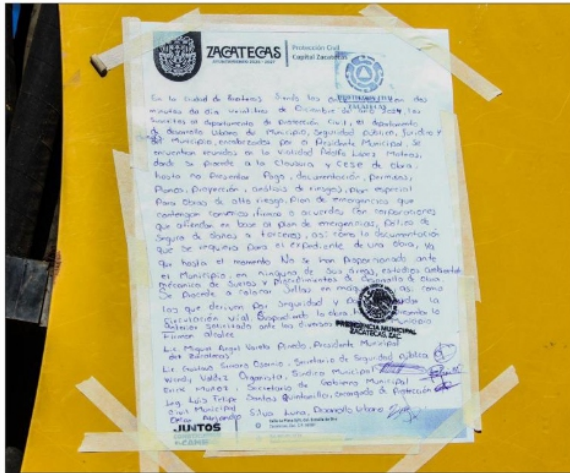 ZACATECAS
Protección Civil
Capital Zacatecas
PROTECCION CIVIL
ZACATECAS
En la ciudad de Zacatecas Siendo las con dos
minutos del dia de Diciembre de 2024, los
suscritos el departamento de Protección Civil, el departamento
de desarrollo Urbano de Municipio, Seguridad pública, Juridico y
del Municipio, encabezados por el Presidente Municipal, Se
encuentran reunidos en la Vialidad Adolfo López Mateos,
donde se procede a la Clausura y Cese de Obra.
hasta no Presentar Pago, documentación, permisos,
Planos, Proyección, análisis de riesgos, plan especial
Para Obras de alto riesgo, plan de emergencias que
contengan convenios firmas o acuerdos con corporaciones
que atienden en base al plan de emergencias, Póliza de
Seguro de daños a terceros, así como la documentación
que se requiera para el expediente de una obra, ya
que hasta el momento No se han Proporcionado ante
el Municipio, en ninguna de sus áreas, estudios
Mecánica de Suelos y Procedimientos de Desarrollo de Obra.
Se Procede a colocar Sellos en así como
los que deriven Por Seguridad y la
Circulación vial la obra
anterior solicitado ante las diversas Municipio
Firman alcalce
PRESIDENCIA MUNICIPAL
ZACATECAS, ZAC.
Lic Miguel Angel Varela Pinedo, Presidente Municipal
de Zacatecas
Lic Gustavo Serrano Osornio, Secretario de Seguridad pública
Wendy Valdez Organista, Sindica Municipal
Erick Muñoz, Secretario de Gobierno Municipal
Ing Luis Felipe Quintanilla, encargado de Protección
Civil Municipal
Alejandro Silva Luna, Desarrollo Urbano
JUNTOS